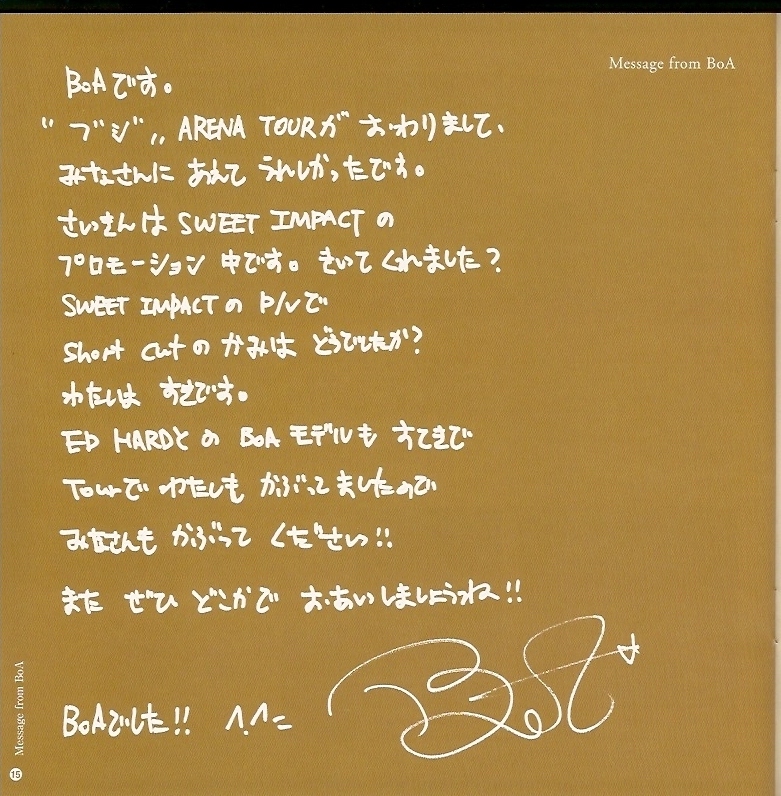 Message from BoA
BoAです。
"ブジ" ARENA TOURが おわりまして、
みなさんに あえて うれしかったです。
さいきんは SWEET IMPACT の
プロモーション 中です。きいて くれました?
SWEET IMPACTの P/Vで
Short cutの かみは どうでしたか?
わたしは すきです。
ED HARDYの BoA モデルも すてきで
Tourで わたしも かぶって ましたので
みなさんも かぶって ください!!
また ぜひ どこかで おあいしましょうね!!
BoAでした!! ^.^=
BoA
Message from BoA
15